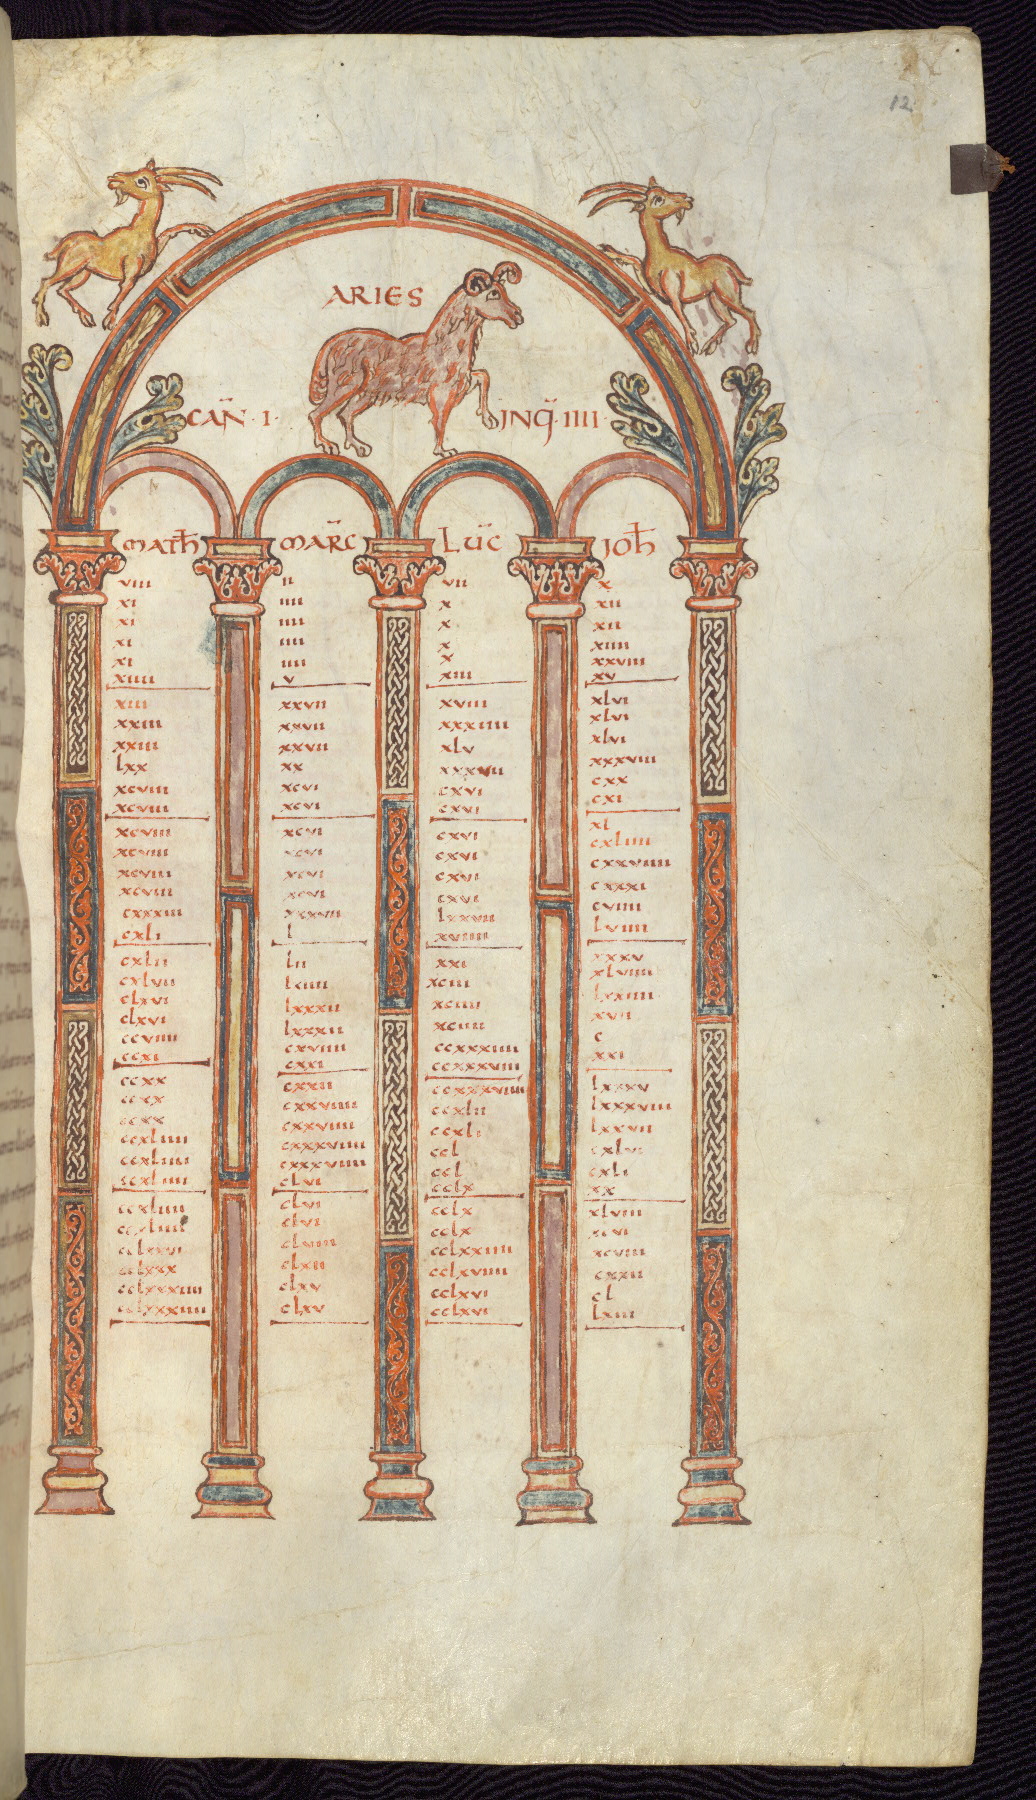 12
ARIES
CAN · I · INQ · IIII ·
MATH MARC LUC JOH
viii ii vii x
xi iiii x xii
xi iiii x xii
xi iiii x xiiii
xi iiii x xxviii
xiiii v xiii xv
xiii xxvii xviii xlvi
xxiii xxvii xxxiiii xlvi
xxiii xxvii xlv xlvi
lxx xx xxxvii xxxviii
xcviii xcvi cxvi cxx
xcviii xcvi cxvi cxi
xcviii xcvi cxvi xl
xcviii xcvi cxvi cxliiii
xcviii xcvi cxvi cxxviiii
xcviii xcvi cxvi cxxxi
cxxxiii xxxvii lxxvii cviiii
cxli l xviiii lviiii
cxlii lii xxi xxxv
cxlvii lxiiii xciii xlviiii
clxvi lxxxii xciiii lxxiiii
clxvi lxxxii xciiii xvii
ccviiii cxviiii ccxxxiiii c
ccxi cxxi ccxxxviii xxi
ccxx cxxii ccxxxviiii lxxxv
ccxx cxxviiii ccxlii lxxxviii
ccxx cxxviiii ccxli lxxvii
ccxliiii cxxxviiii ccl cxlvi
ccxliiii cxxxviiii ccl cxli
ccxliiii clvi cclx xx
ccxliiii clvi cclx xlviii
ccxliiii clvi cclx xcvi
cclxxvi clviii cclxxiiii xcviii
cclxxx clxii cclxviiii cxxii
cclxxxiiii clxv cclxvi cl
cclxxxiiii clxv cclxvi lxiii